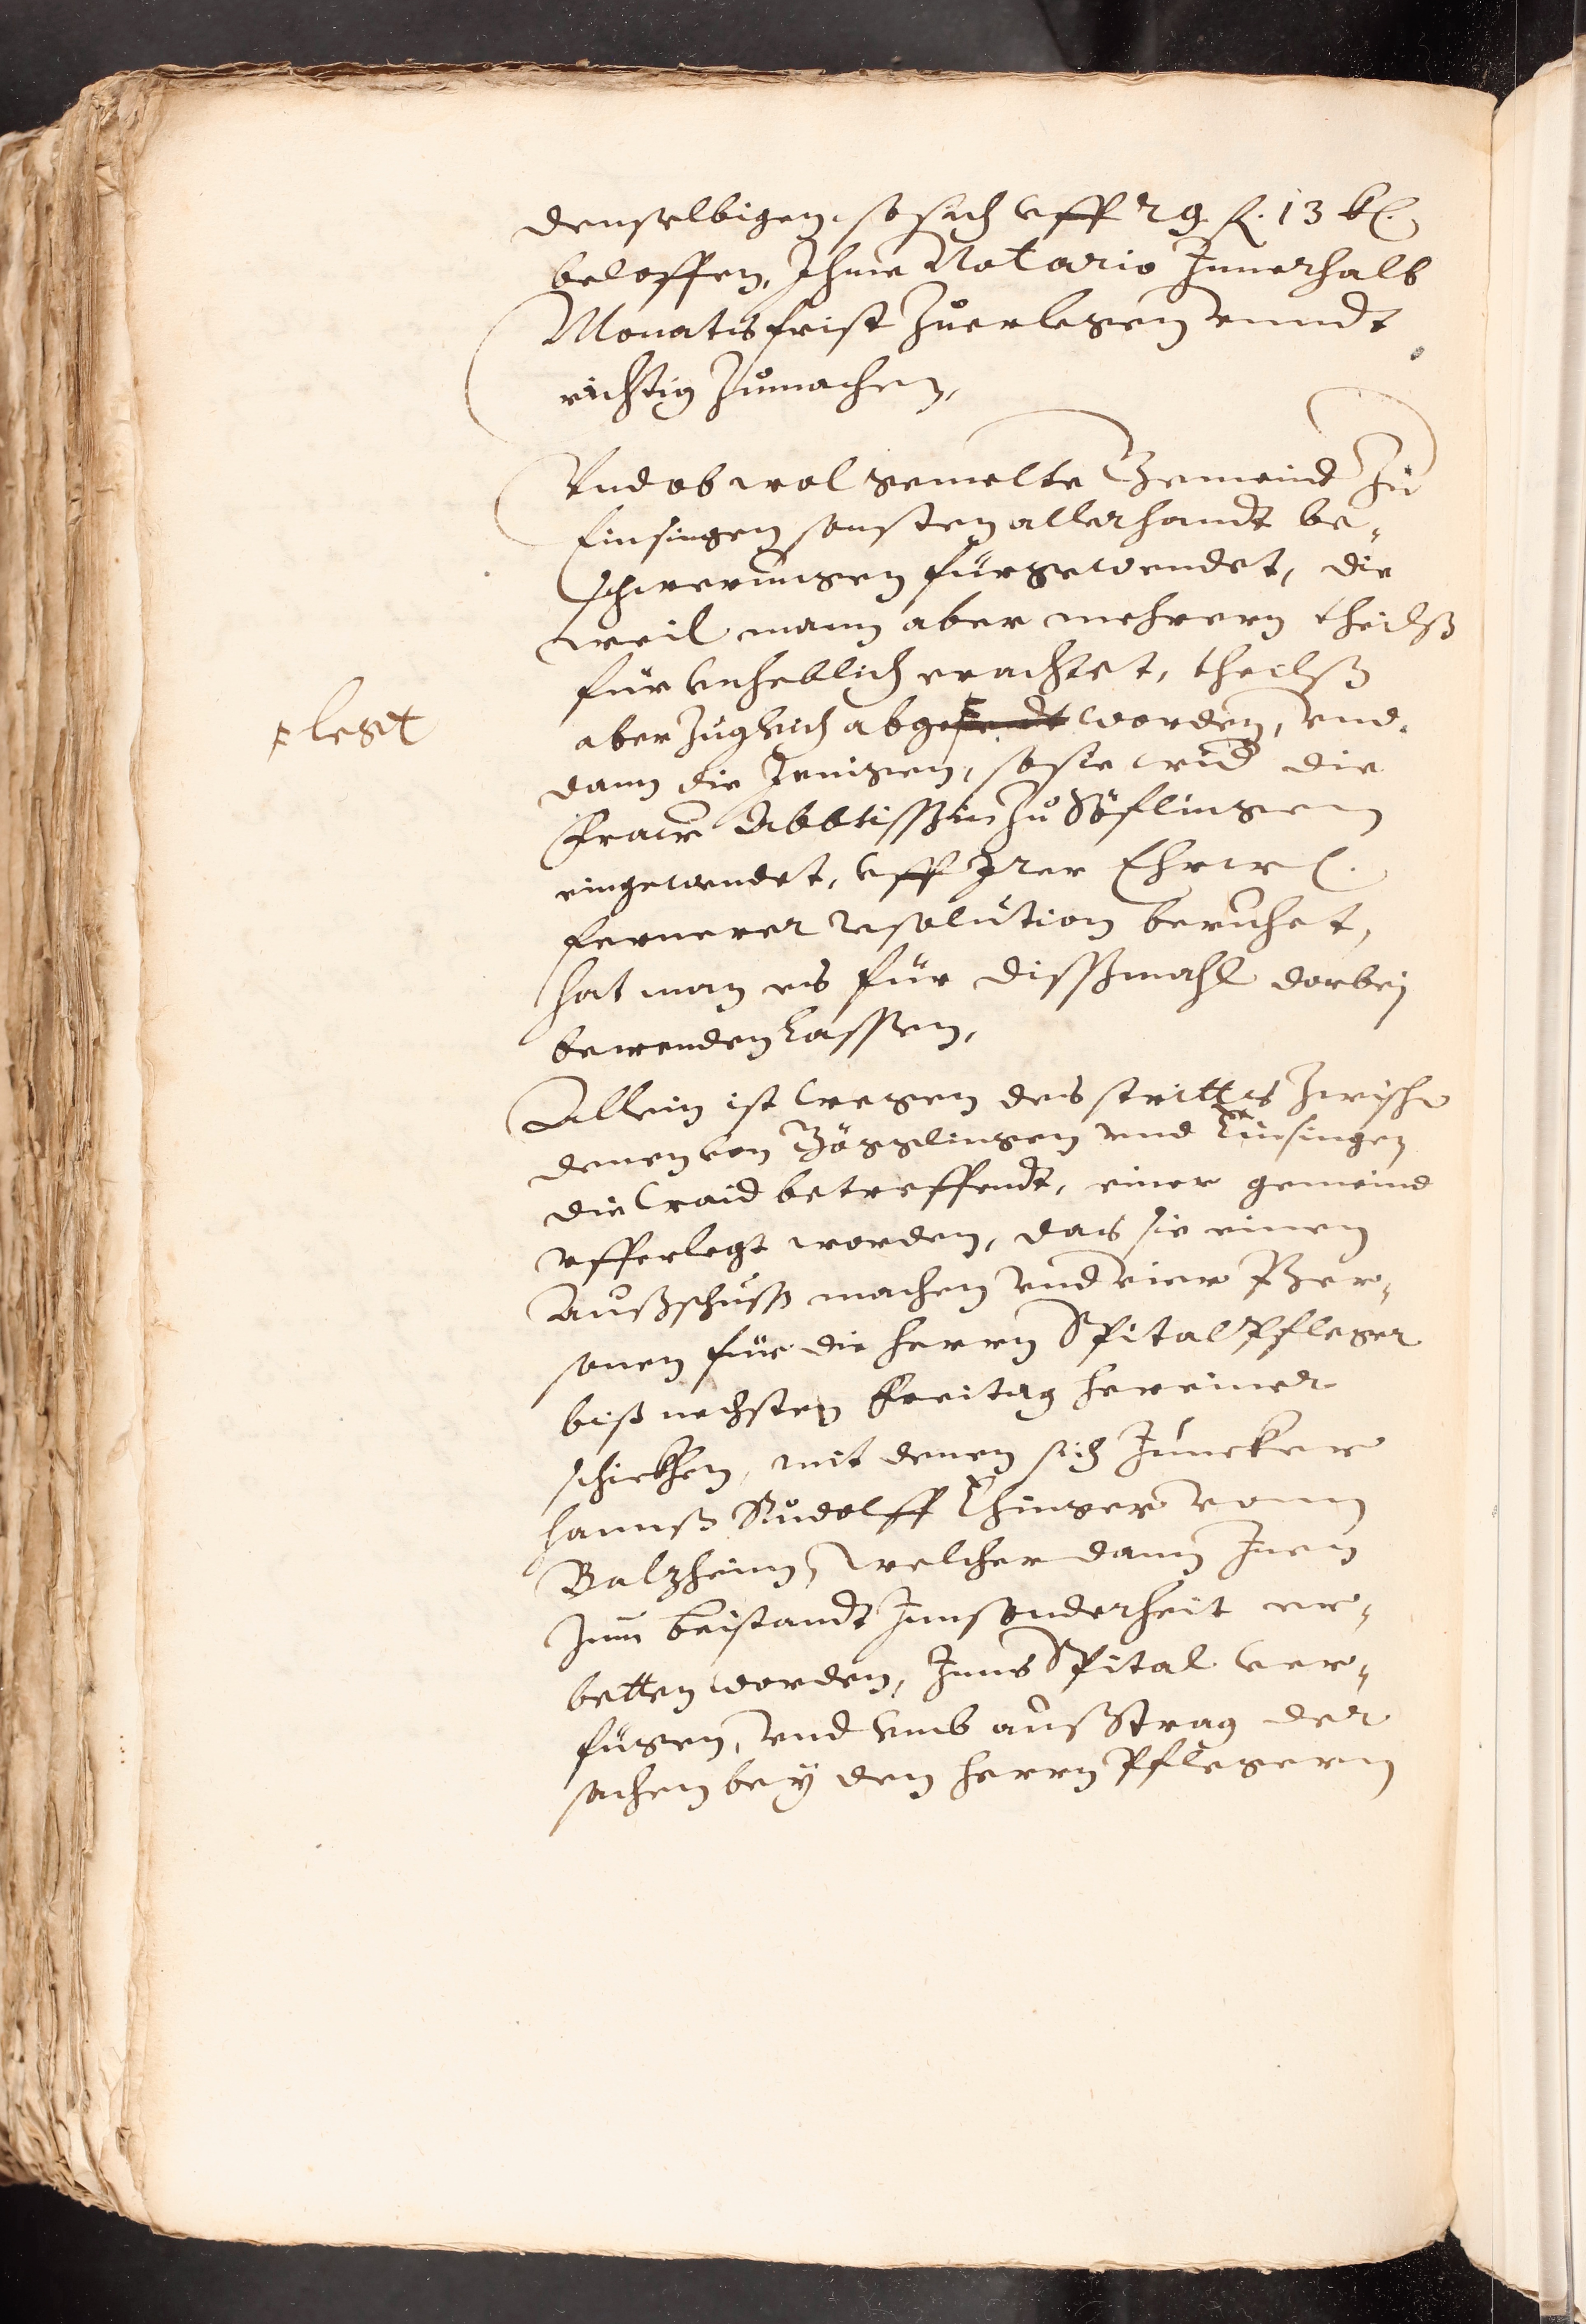 denselbigen, so sich vff 29 fl. 13 kr.
beloffen, Ihme Notario Innerhalb
Monatsfrist zuerlegen vnndt
richtig zumachen,
Vnd ob wol gemelte Gemeind zu
Einsingen sonsten allerhandt be-
schwerungen fürgewendet, die
weil mann aber mehrern theilß
für vnheblich erachtet, theilß
aber zugleich abge worden, vnd
legt
dann die Jenigen, so sie wid die
Fraw Abbtissin zu Söflingen
eingewendet, vff Irer Ehrw.
fernerer resolution beruhet,
hat man es für dissmahl darbej
bewenden lassen,
Allein ist wegen des strittes zwischen
denen von Gögglingen vnd Einsingen
die waid betreffendt, einer gemeind
vfferlegt worden, das sie einen
Außschuss machen vnd vier Per-
sonen für die herrn Spital Pfleger
biß nechsten Freitag hereiner
schickhen, mit denen sich Juncker
Hannß Rudolff Ehinger vonn
Balzheim, welcher dann Inen
zum beistandt Innsonderheit er-
betten worden, Inns Spital ver-
fügen, vnd vmb außtrag der
sachen bey den herrn Pflegern